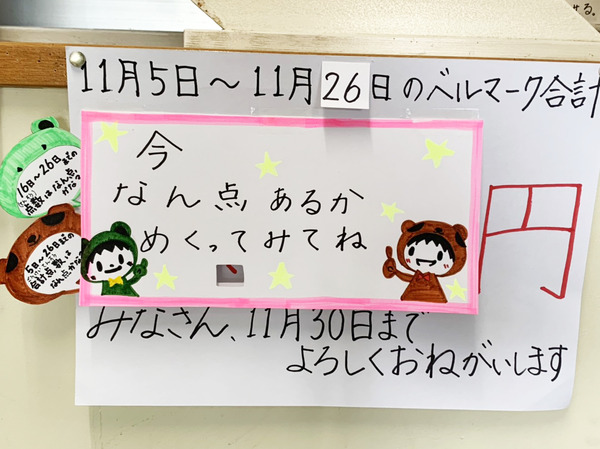 11月5日～11月26日のベルマーク合計
今
なん点あるか
めくってみてね
円
みなさん、11月30日まで
よろしくおねがいします
16日～26日までの
点数はなん点
かな?
5日～26日までの
合計点数は
なん点かな?
る.